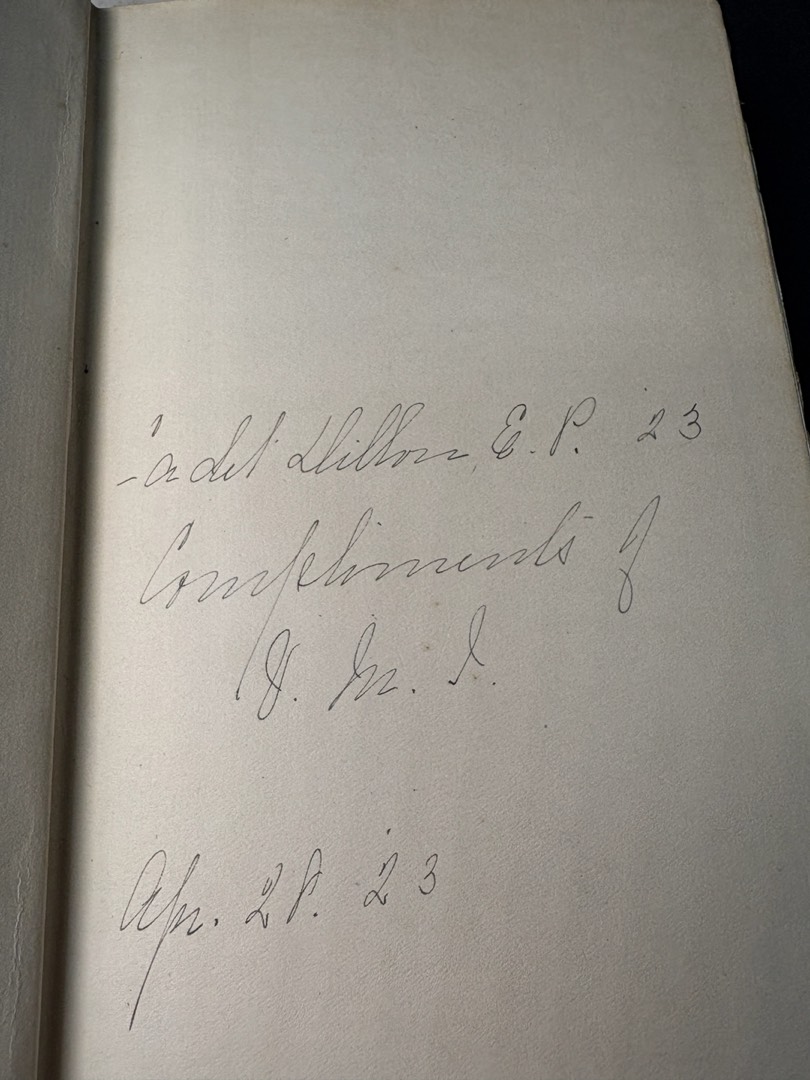 Cadet Dillon, E. P. '23
Compliments of
V. M. I.
Apr. 28. '23